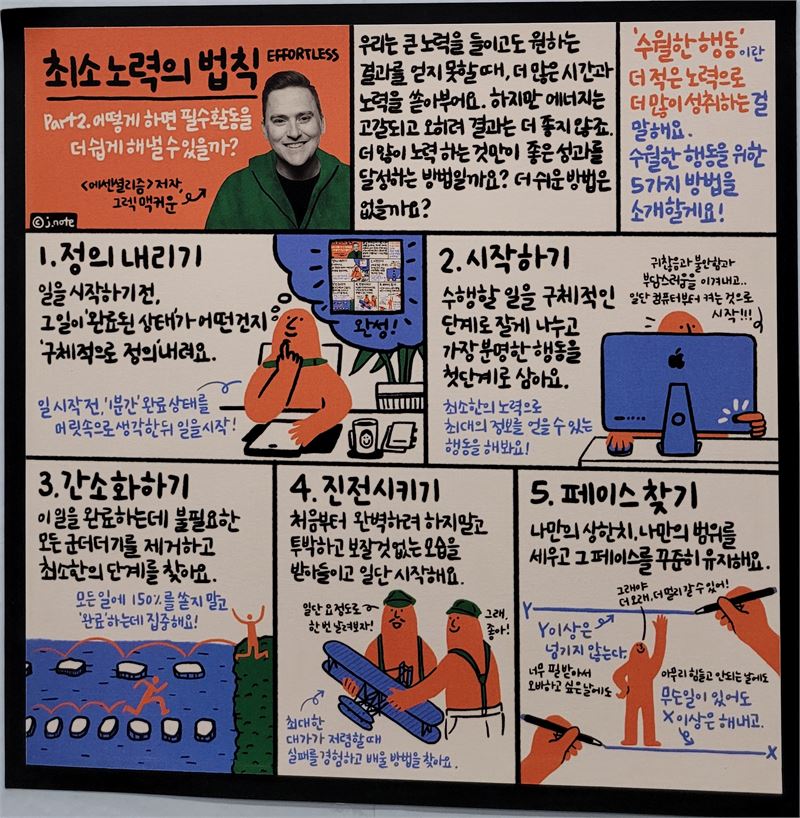 최소 노력의 법칙 EFFORTLESS
Part2. 어떻게 하면 필수활동을
더 쉽게 해낼 수 있을까?
<에센셜리즘> 저자,
그렉 맥커운
ⓒ j.note
우리는 큰 노력을 들이고도 원하는
결과를 얻지 못할 때, 더 많은 시간과
노력을 쏟아부어요. 하지만 에너지는
고갈되고 오히려 결과는 더 좋지 않죠.
더 많이 노력 하는 것만이 좋은 성과를
달성하는 방법일까요? 더 쉬운 방법은
없을까요?
'수월한 행동'이란
더 적은 노력으로
더 많이 성취하는 걸
말해요.
수월한 행동을 위한
5가지 방법을
소개할게요!
1. 정의 내리기
일을 시작하기 전,
그 일이 '완료된 상태'가 어떤건지
'구체적으로 정의'내려요.
일 시작 전, '1분간' 완료 상태를
머릿속으로 생각한 뒤 일을 시작!
완성!
2. 시작하기
수행할 일을 구체적인
단계로 잘게 나누고
가장 분명한 행동을
첫단계로 삼아요.
최소한의 노력으로
최대의 정보를 얻을 수 있는
행동을 해봐요!
귀찮음과 불안함과
부담스러움을 이겨내고..
일단 컴퓨터부터 켜는 것으로
시작!!!
3. 간소화하기
이 일을 완료하는데 불필요한
모든 군더더기를 제거하고
최소한의 단계를 찾아요.
모든 일에 150%를 쏟지 말고
'완료'하는데 집중해요!
4. 진전시키기
처음부터 완벽하려 하지말고
투박하고 보잘것없는 모습을
받아들이고 일단 시작해요.
일단 요정도로
한 번 날려보자!
그래,
좋아!
최대한
대가가 저렴할 때
실패를 경험하고 배울 방법을 찾아요.
5. 페이스 찾기
나만의 상한치, 나만의 범위를
세우고 그 페이스를 꾸준히 유지해요.
그래야
더 오래, 더 멀리 갈 수 있어!
Y
Y이상은
넘기지 않는다.
너무 필 받아서
오바하고 싶은날에도
아무리 힘들고 안되는 날에도
무슨일이 있어도
X 이상은 해내고.
X